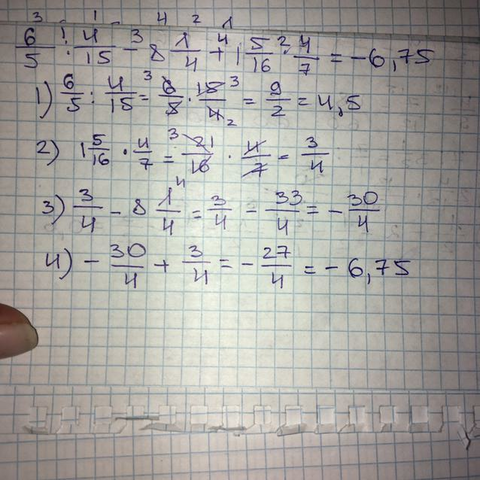 3 1 4 2
6/5 : 4/15 - 8 1/4 + 1 5/16 · 4/7 = -6,75
1) 6/5 : 4/15 = 6/5 · 15/4 = 9/2 = 4,5
2) 1 5/16 · 4/7 = 21/16 · 4/7 = 3/4
3) 3/4 - 8 1/4 = 3/4 - 33/4 = -30/4
4) -30/4 + 3/4 = -27/4 = -6,75